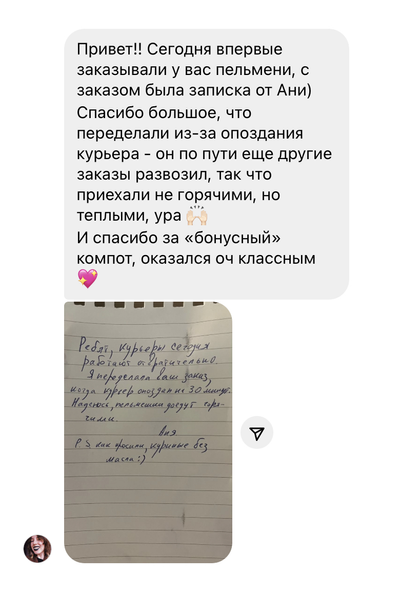 Привет!! Сегодня впервые
заказывали у вас пельмени, с
заказом была записка от Ани)
Спасибо большое, что
переделали из-за опоздания
курьера - он по пути еще другие
заказы развозил, так что
приехали не горячими, но
теплыми, ура 🙌🏻
И спасибо за «бонусный»
компот, оказался оч классным
💖
Ребят, курьеры сегодня
работают отвратительно.
Я переделала ваш заказ,
когда курьер опоздал на 30 минут.
Надеюсь, пельмешки доедут горя-
чими.
Аня
P.S как просили, куриные без
масла :)